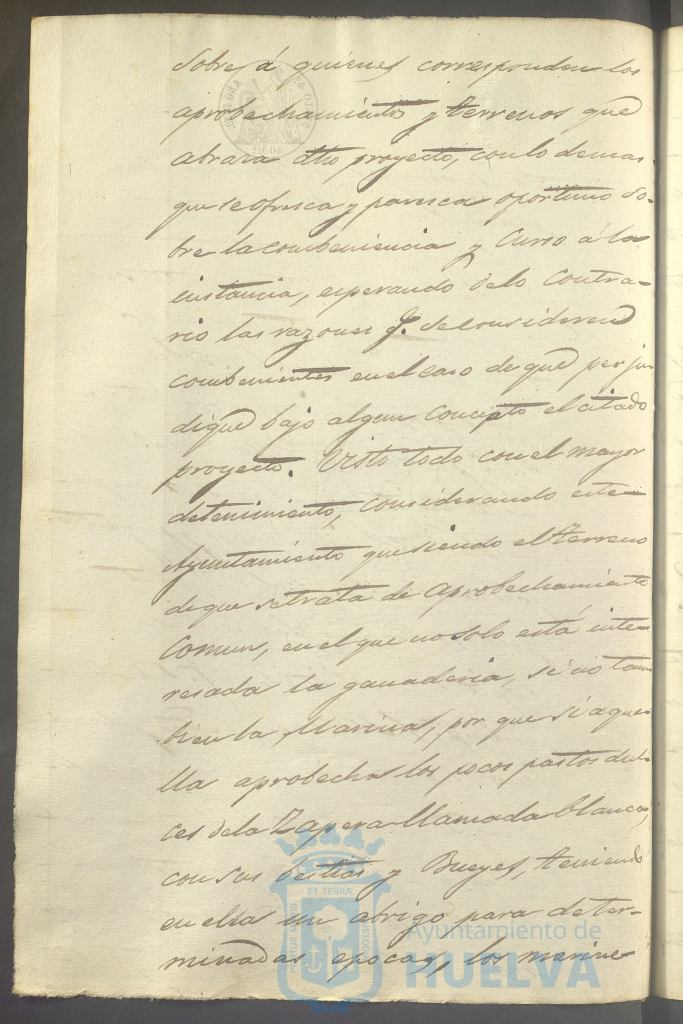 sobre á quienes corresponden los
aprobechamientos y terrenos que
abraza dho proyecto, con lo demas
que se ofresca y paresca oportuno so-
bre la combeniencia y Curso á la
instancia, esperando delo Contra-
rio las razones q. se consideren
combenientes en el caso de que perju
dique bajo algun Concepto el citado
proyecto. Visto todo con el mayor
detenimiento, considerando este
Ayuntamiento que siendo el terreno
de que se trata de aprobechamiento
Comun, en el que no solo está inte-
resada la ganaderia, sino tam
bien la Marina, por que si aque
lla aprobecha los pocos pastos dul-
ces de la Zapera llamada blanca,
con sus bestias y Bueyes, teniendo
en ella un abrigo para deter-
minadas epocas, los marine
ET TERRÆ
Ayuntamiento de
HUELVA